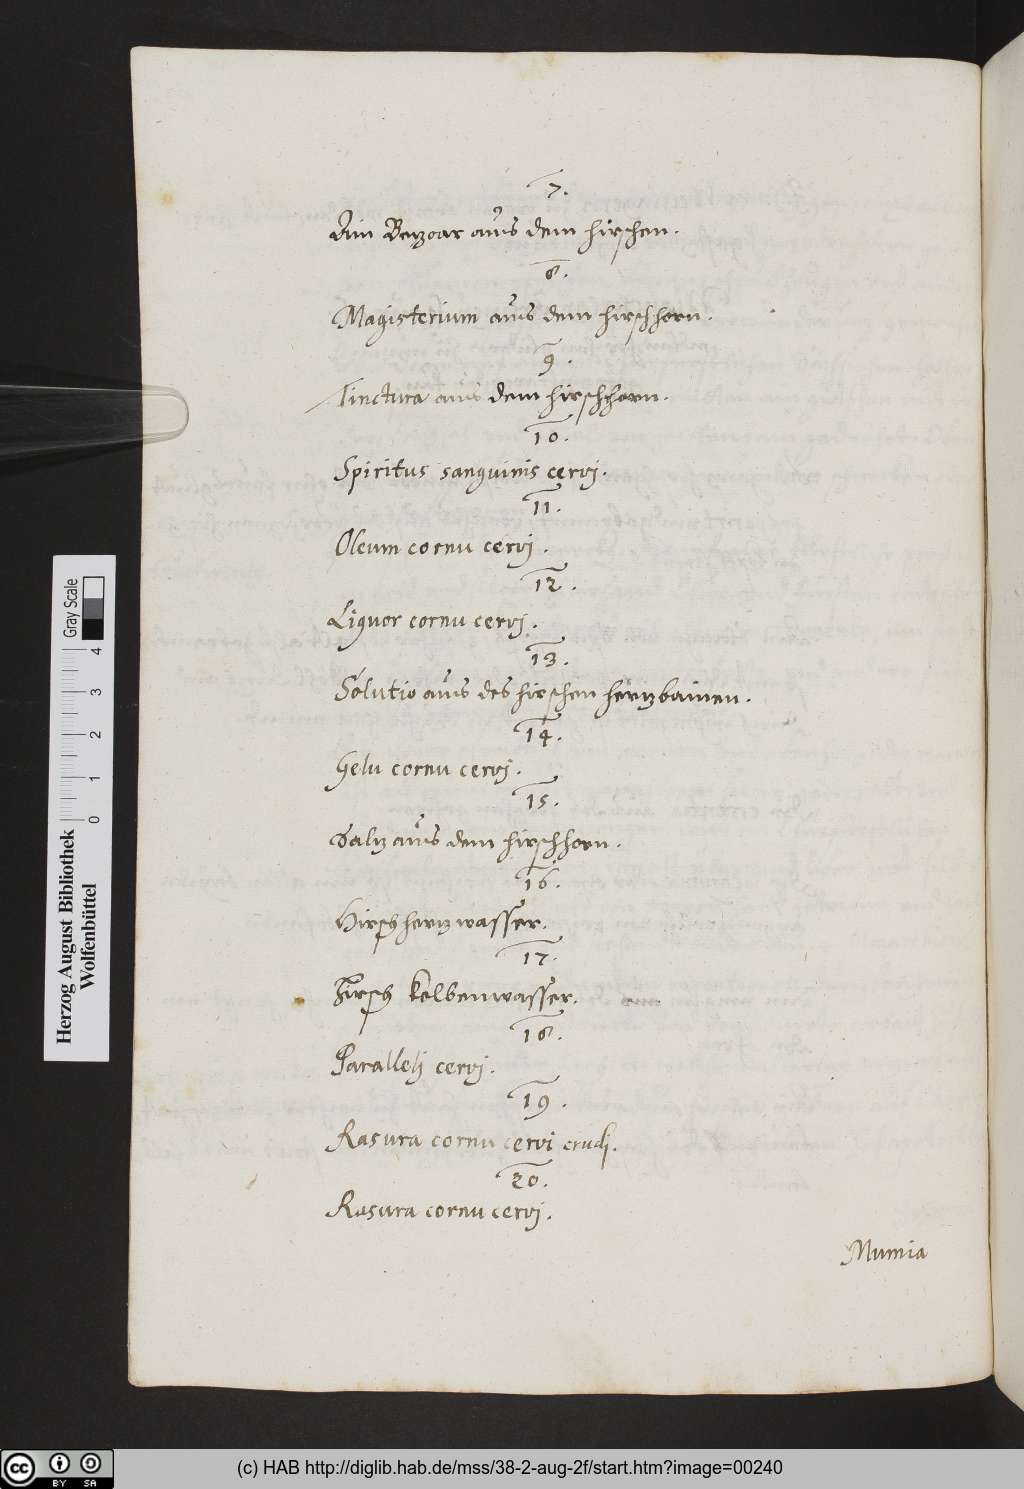 7.
Ain Bezoar aus dem hirschen.
8.
Magisterium aus dem hirschhorn.
9.
Tinctura aus dem hirschhorn.
10.
Spiritus sanguinis cervj.
11.
Oleum cornu cervj.
12.
Liquor cornu cervj.
13.
Solutio aus des hirschen hertzbainen.
14.
Gelu cornu cervj.
15.
Saltz aus dem hirschhorn.
16.
Hirschhertzwasser.
17.
Hirsch kolbenwasser.
18.
Parallelj cervj.
19.
Rasura cornu cervi crudj.
20.
Rasura cornu cervj.
Mumia
Herzog August Bibliothek
Wolfenbüttel
Gray Scale
0 1 2 3 4
cc BY SA
(c) HAB http://diglib.hab.de/mss/38-2-aug-2f/start.htm?image=00240